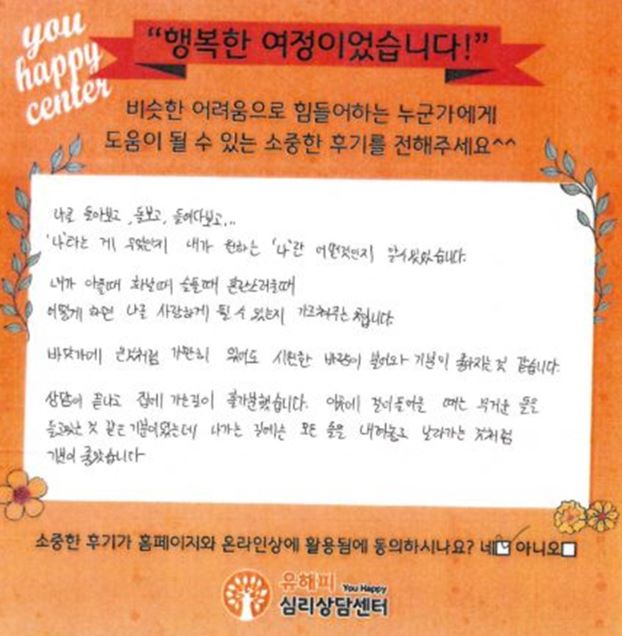 you
happy
center
“행복한 여정이었습니다!”
비슷한 어려움으로 힘들어하는 누군가에게
도움이 될 수 있는 소중한 후기를 전해주세요^^
나를 돌아보고, 돌보고, 들여다보고,..
'나'라는 게 무엇인지 내가 원하는 '나'란 어떤것인지 알수있었습니다.
내가 아플때 화날때 슬플때 혼란스러울때
어떻게 하면 나를 사랑하게 될 수 있는지 가르쳐주는 곳입니다.
바닷가에 온것처럼 가만히 있어도 시원한 바람이 불어와 기분이 좋아지는것 같습니다.
상담이 끝나고 집에 가는길이 홀가분했습니다. 이곳에 걸어들어올 때는 무거운 돌을
들고있는 것 같은 기분이었는데 나가는 길에는 모든 돌을 내려놓고 날아가는 것처럼
기분이 좋았습니다
소중한 후기가 홈페이지와 온라인상에 활용됨에 동의하시나요? 네 아니오
유해피 You Happy
심리상담센터